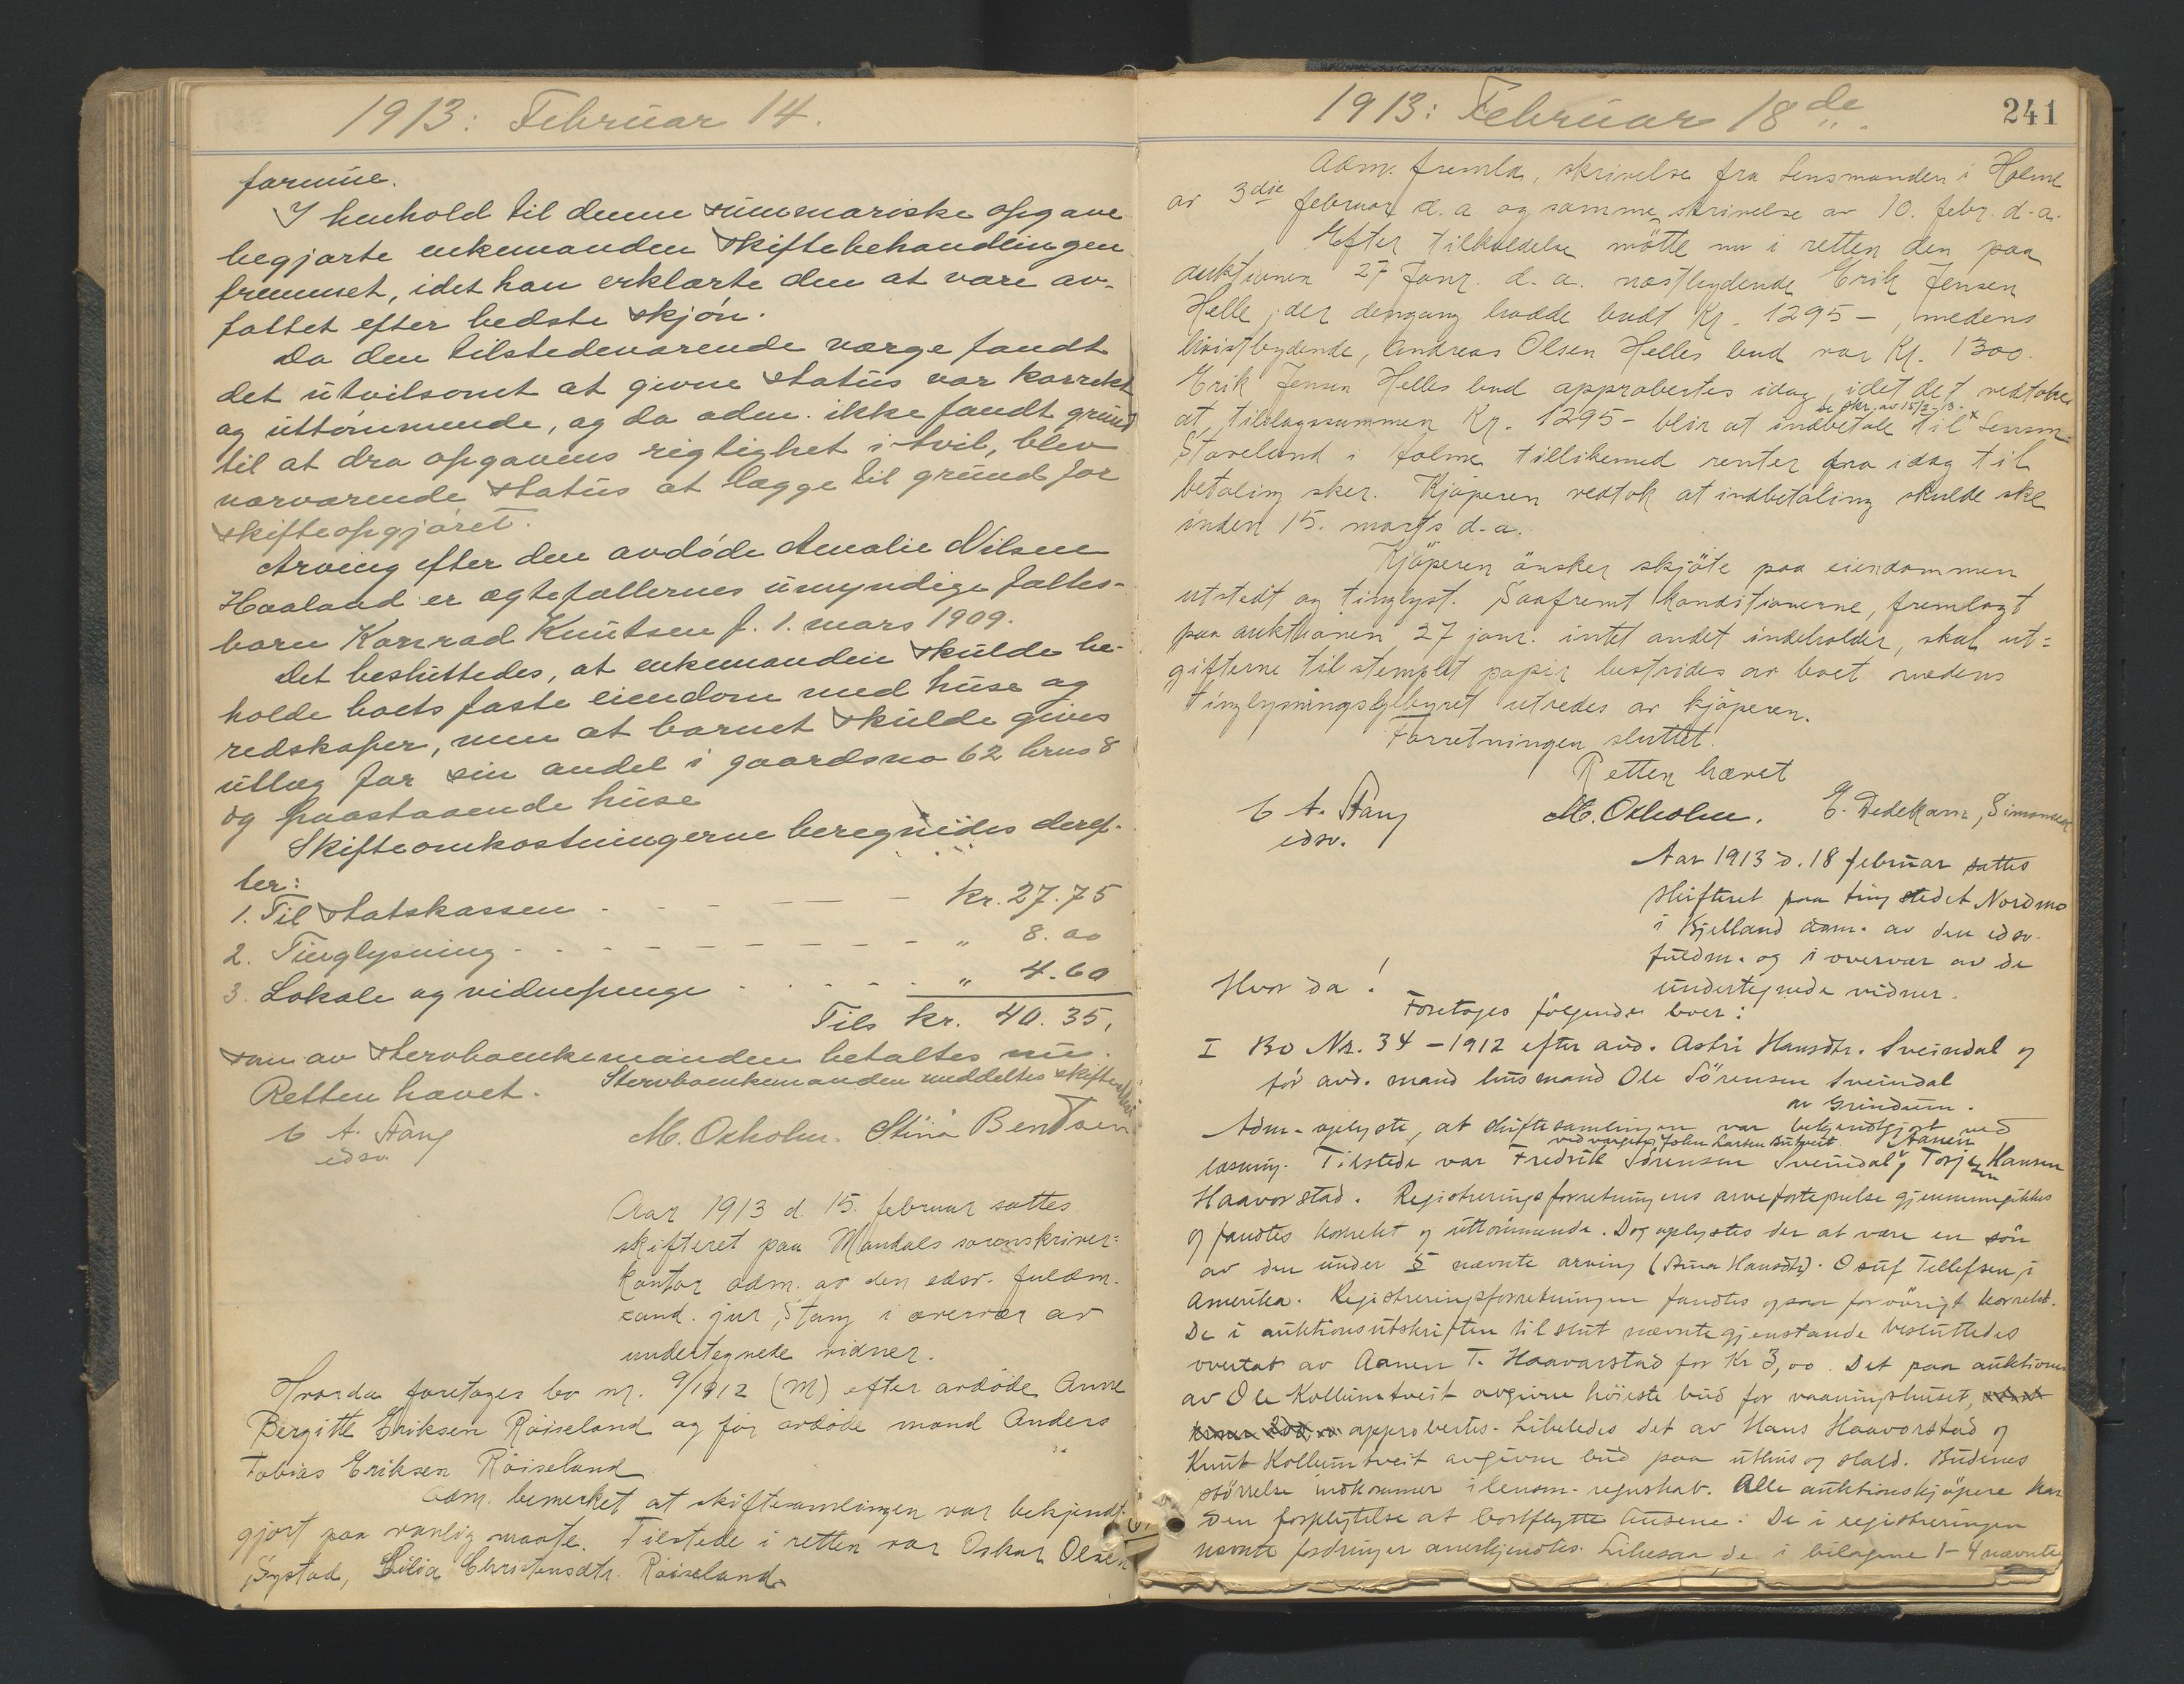 1913: Februar 14.
formue.
I henhold til denne summariske opgave
begjærte enkemanden skiftebehandlingen
fremmet, idet han erklærte den at være av-
fattet efter bedste skjøn.
Da den tilstedeværende værge fandt
det utvilsomt at givne status var korrekt
og uttømmende, og da adm. ikke fandt grund
til at dra opgavens rigtighet i tvil, blev
nærværende status at lægge til grund for
skifteopgjøret.
Arving efter den avdøde Amalie Nilsen
Haaland er ægtefællernes umyndige fælles-
barn Konrad Knutsen f. 1. mars 1909.
Det besluttedes, at enkemanden skulde be-
holde boets faste eiendom med huse og
redskaper, men at barnet skulde gives
utlæg for sin andel i gaardsno 62 brno 8
og paastaaende huse
Skifteomkostningerne beregnedes deref-
ter:
1. Til statskassen - - - - kr. 27.75
2. Tinglysning - - - - - - " 8.00
3. Lokale og vidnepenge - - - - " 4.60
Tils kr. 40.35,
som av stervboenkemanden betaltes nu.
Stervboenkemanden meddeltes skifteutskr.
Retten hævet.
C A. Stang M. Oxholm. Stina Bendtsen
edsv.
Aar 1913 d. 15. februar sattes
skifteret paa Mandals sorenskriver-
kontor adm. av den edsv. fuldm.
cand. jur. Stang i overvær av
undertegnede vidner.
Hvorda foretages bo nr. 9/1912 (M) efter avdøde Anne
Bergitte Eriksen Röiseland og før avdøde mand Anders
Tobias Eriksen Röiseland
Adm. bemerket at skiftesamlingen var bekjendt-
gjort paa vanlig maate. Tilstede i retten var Oskar Olsen
Systad, Lilia Christensdtr. Röiseland.
1913: Februar 18de. 241
Adm. fremla, skrivelse fra Lensmanden i Holme
av 3dje februar d.a. og samme skrivelse av 10. febr. d.a.
Efter tilkaldelse mötte nu i retten den paa
auktionen 27 Janr. d.a. næstbydende Erik Jensen
Helle, der dengang hadde budt Kr. 1295 -, medens
höistbydende, Andreas Olsen Helles bud var Kr. 1300.
Erik Jensen Helles bud approbertes idag, idet det vedtokes
se skr. av 15/2-13.
at tilslagssummen Kr. 1295 - blir at indbetale til x Lensm.
Staveland i Holme tillikemed renter fra idag til
betaling sker. Kjöperen vedtok at indbetaling skulde ske
inden 15. marts d.a.
Kjöperen önsker skjöte paa eiendommen
utstedt og tinglyst. Saafremt konditionerne, fremlagt
paa auktionen 27 janr. intet andet indeholder, skal ut-
gifterne til stemplet papir bestrides av boet medens
tinglysningsgebyret utredes av kjöperen.
Forretningen sluttet.
Retten hævet
C A. Stang M. Oxholm. E. Dedekam, Simonsen
edsv.
Aar 1913 d. 18 februar sattes
skifteret paa tingstedet Nordmo
i Bjelland adm. av den edsv.
fuldm. og i overvær av de
undertegnede vidner.
Hvor da!
Foretages følgende boer:
I Bo Nr. 34 - 1912 efter avd. Astri Hansdtr. Sveindal og
før avd. mand husmand Ole Sörensen Sveindal
av Grindum.
Adm. oplyste, at skiftesamlingen var bekjendtgjort ved
ved vergen John Larsen Aanen
læsning. Tilstede var Fredrik Sörensen Sveindal, Torjesen Hansen
Haavorstad. Registreringsforretningens arvefortegnelse gjennemgikkes
og fandtes korrekt og uttömmende. Dog oplystes der at være en sön
av den under 5 nævnte arving (Anna Hansdtr). Osuf Tellefsen i
Amerika. Registreringsforretningen fandtes ogsaa forövrigt korrekt.
De i auktionsutskriften til slut nævnte gjenstande besluttedes
overtat av Aanen T. Haavarstad for Kr 3,00. Det paa auktionen
av Ole Kollumtveit avgivne höieste bud for vaaningshuset,
approbertes. Likeledes det av Hans Haavorstad og
Knut Kollumtveit avgivne bud paa uthus og stald. Budenes
störrelse indkommer i lensm. regnskab. Alle auktionskjöpere har
den forpligtelse at bortflytte husene. De i registreringen
nævnte fordringer anerkjendtes. Likesaa de i bilagene 1-4 nævnte